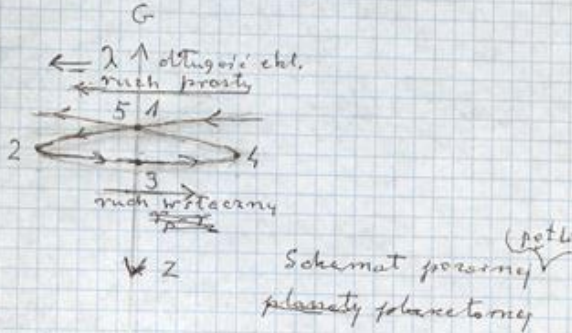 G
λ długość ekl.
ruch prosty
5 1
2
4
3
ruch wsteczny
Z
(pętl
Schemat pozorny
planety planetarny